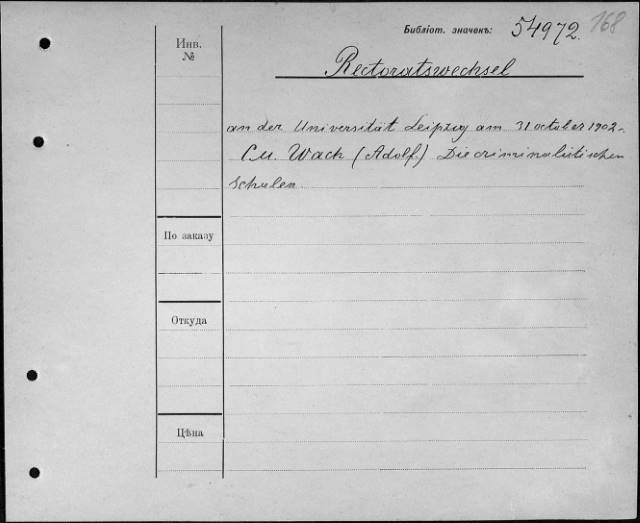 Библіот. значекъ: 54972. 168
Инв. №
Rectoratswechsel
an der Universität Leipzig am 31 october 1902.
См. Wach (Adolf.) Die criminalistischen
Schulen.
По заказу
Откуда
Цѣна